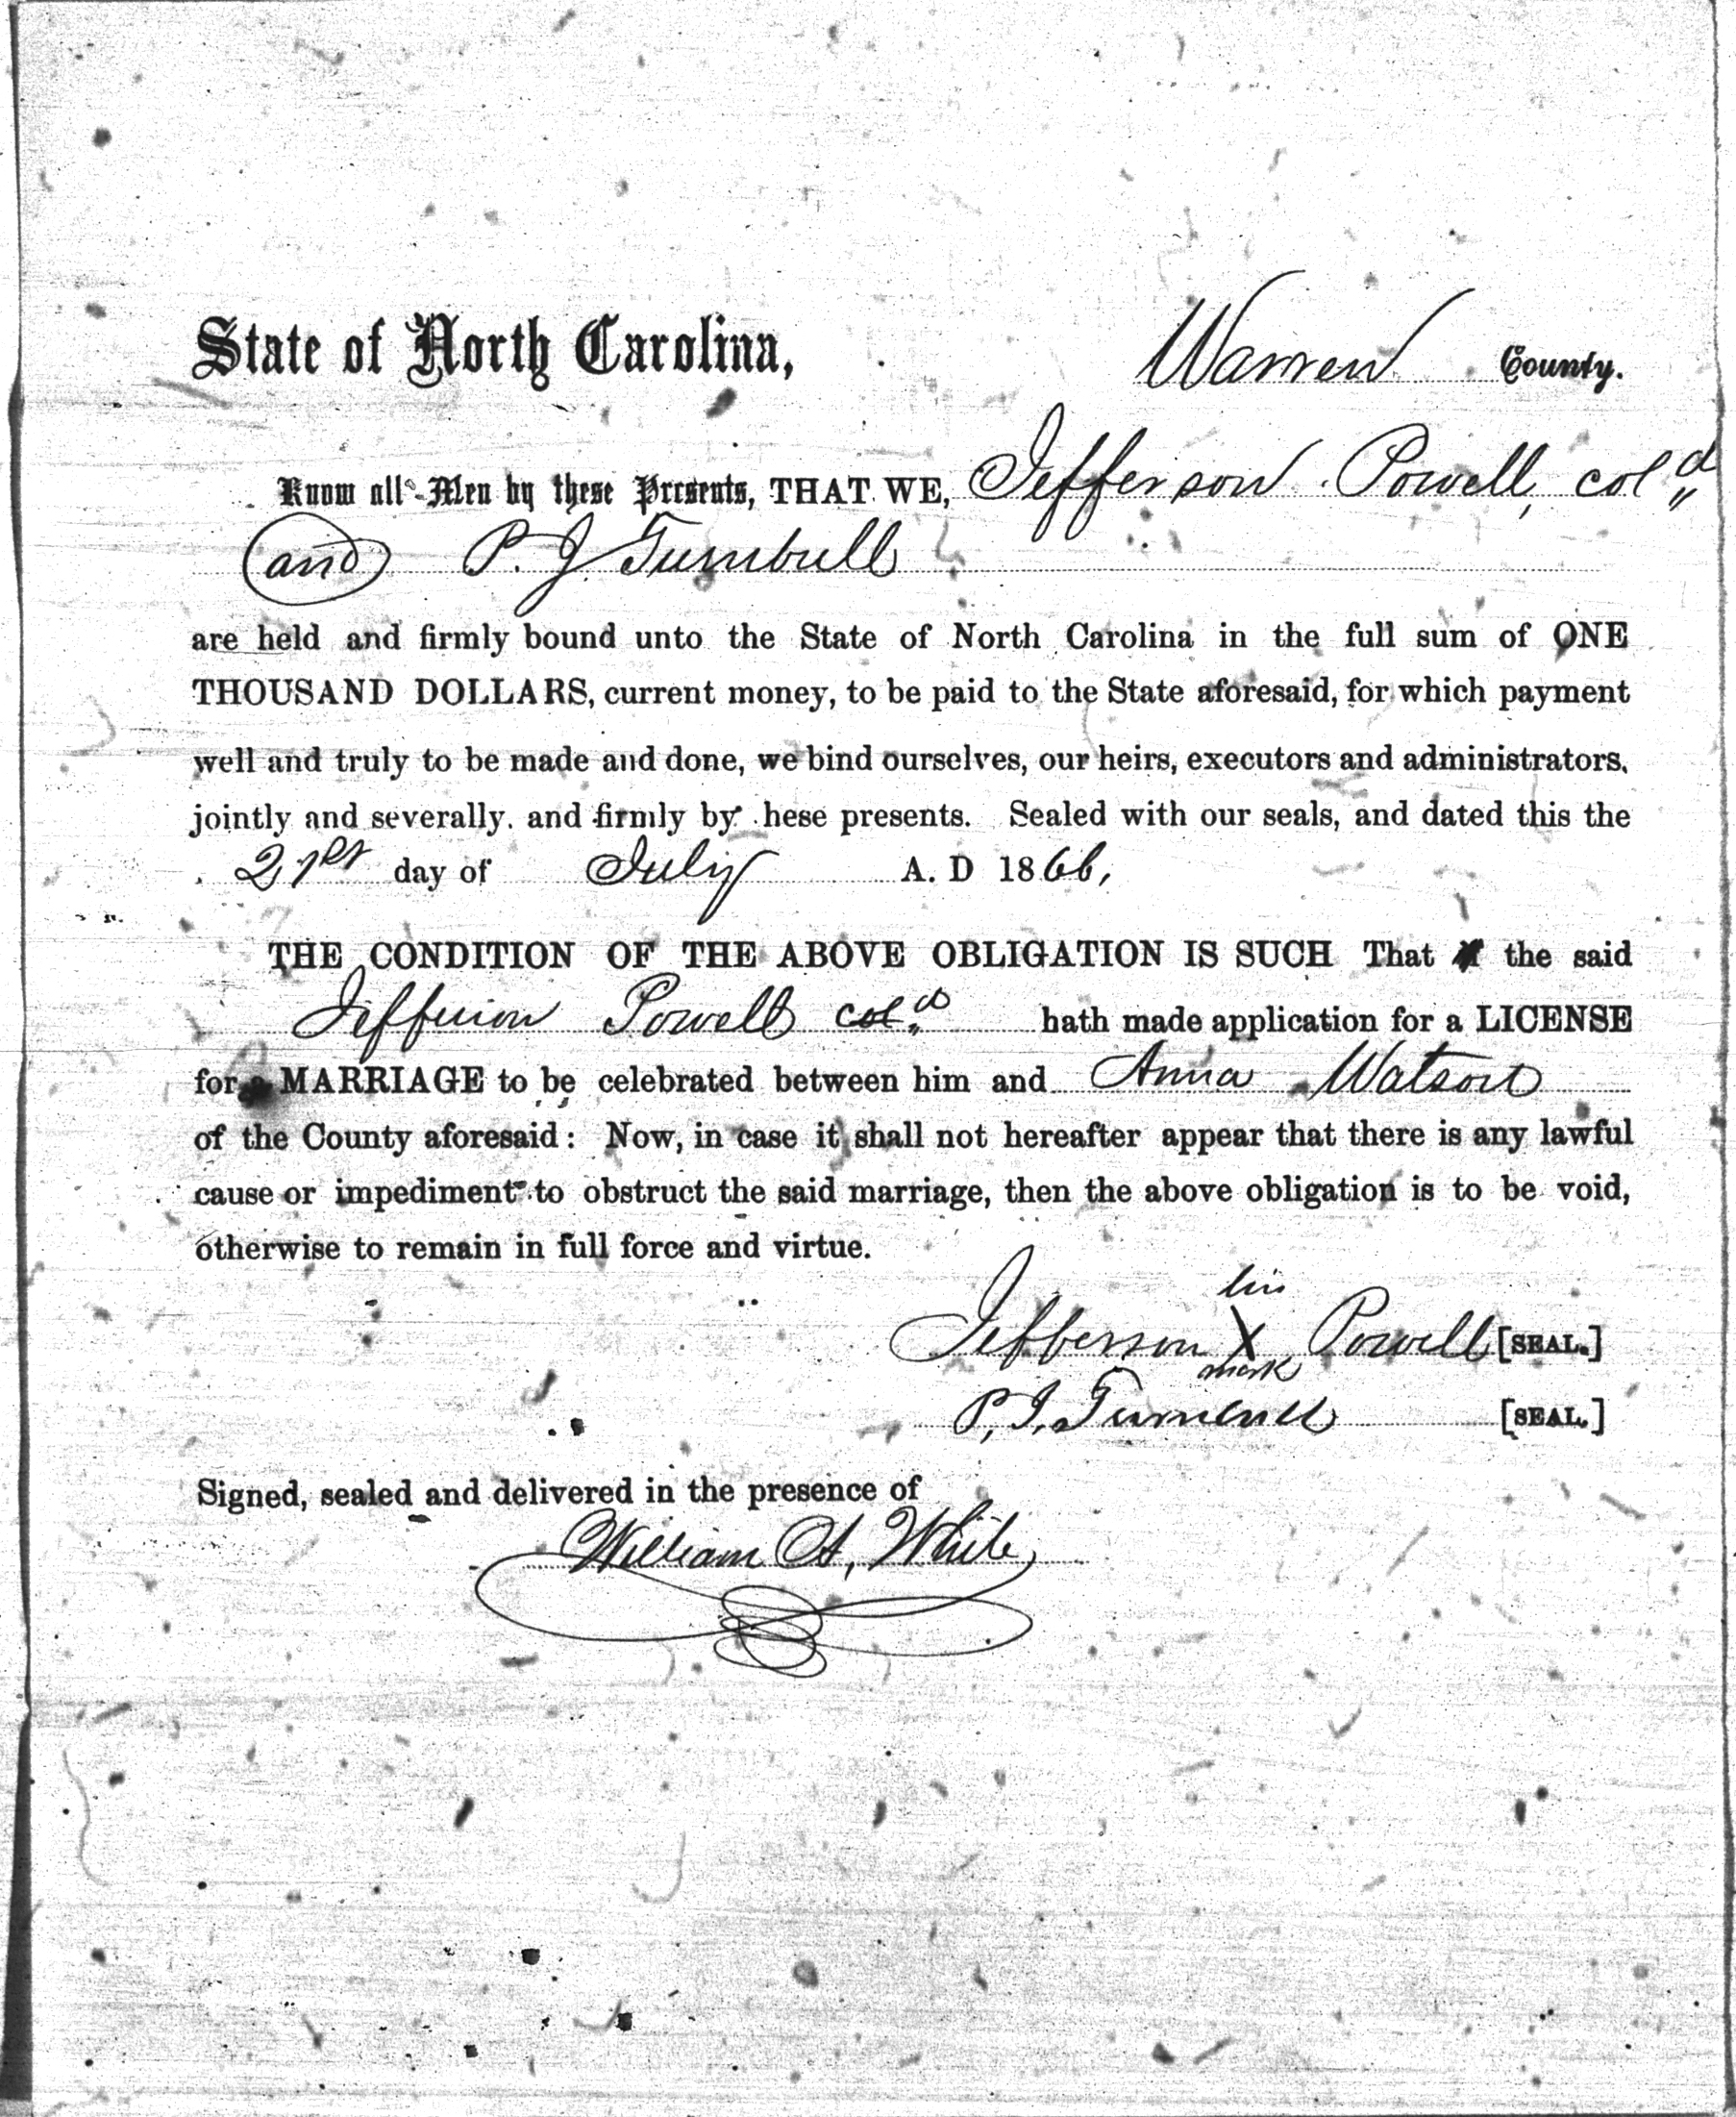 State of North Carolina, Warren County.
Know all Men by these Presents, THAT WE, Jefferson Powell, col d
and P. J. Turnbull
are held and firmly bound unto the State of North Carolina in the full sum of ONE
THOUSAND DOLLARS, current money, to be paid to the State aforesaid, for which payment
well and truly to be made and done, we bind ourselves, our heirs, executors and administrators,
jointly and severally, and firmly by hese presents. Sealed with our seals, and dated this the
21st day of July A. D 1866,
THE CONDITION OF THE ABOVE OBLIGATION IS SUCH That the said
Jefferson Powell col d hath made application for a LICENSE
for a MARRIAGE to be celebrated between him and Anna Watson
of the County aforesaid: Now, in case it shall not hereafter appear that there is any lawful
cause or impediment to obstruct the said marriage, then the above obligation is to be void,
otherwise to remain in full force and virtue.
his
Jefferson X Powell [SEAL.]
mark
P. J. Turnbull [SEAL.]
Signed, sealed and delivered in the presence of
William A. White